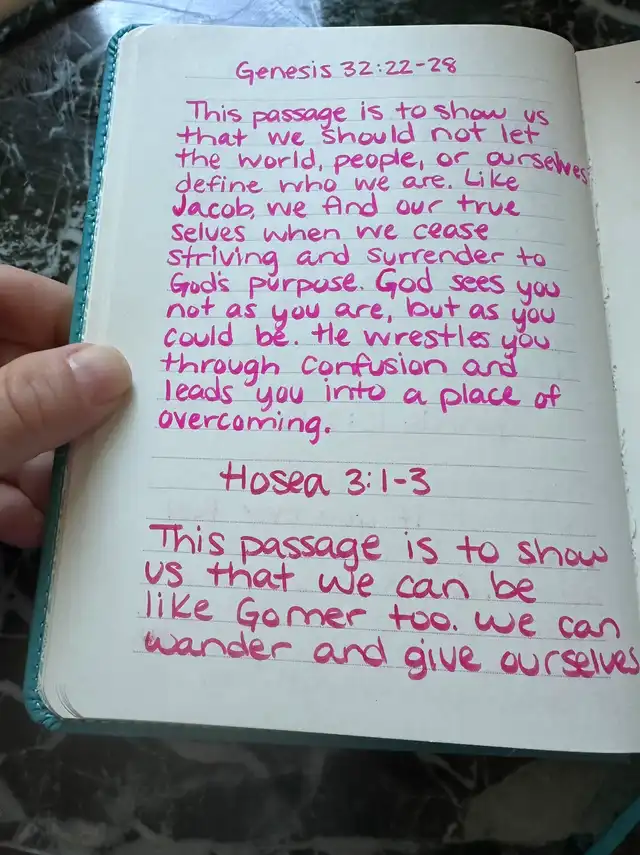 Genesis 32:22-28
This passage is to show us
that we should not let
the world, people, or ourselves
define who we are. Like
Jacob, we find our true
selves when we cease
striving and surrender to
God's purpose. God sees you
not as you are, but as you
could be. He wrestles you
through confusion and
leads you into a place of
overcoming.
Hosea 3:1-3
This passage is to show
us that we can be
like Gomer too. We can
wander and give ourselves